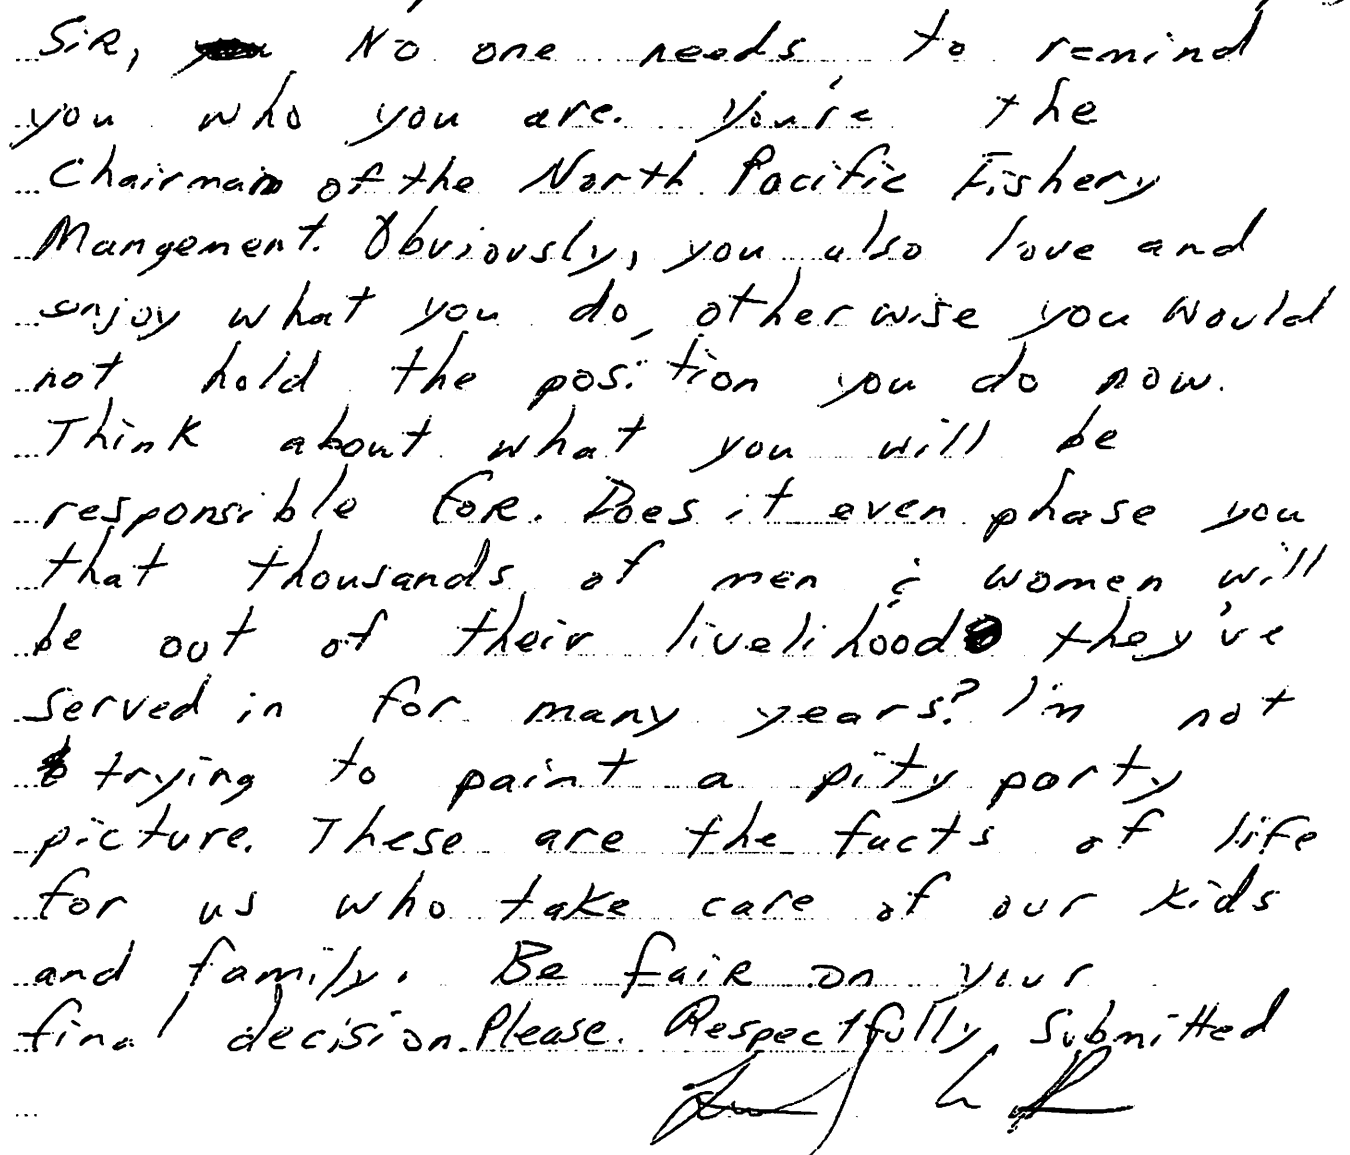 Sir, No one needs to remind
you who you are. You're the
Chairman of the North Pacific Fishery
Mangement. Obviously, you also love and
enjoy what you do, otherwise you would
not hold the position you do now.
Think about what you will be
responsible for. Does it even phase you
that thousands of men & women will
be out of their livelihood they've
served in for many years? I'm not
trying to paint a pity party
picture. These are the facts of life
for us who take care of our kids
and family. Be fair on your
final decision. Please. Respectfully Submitted